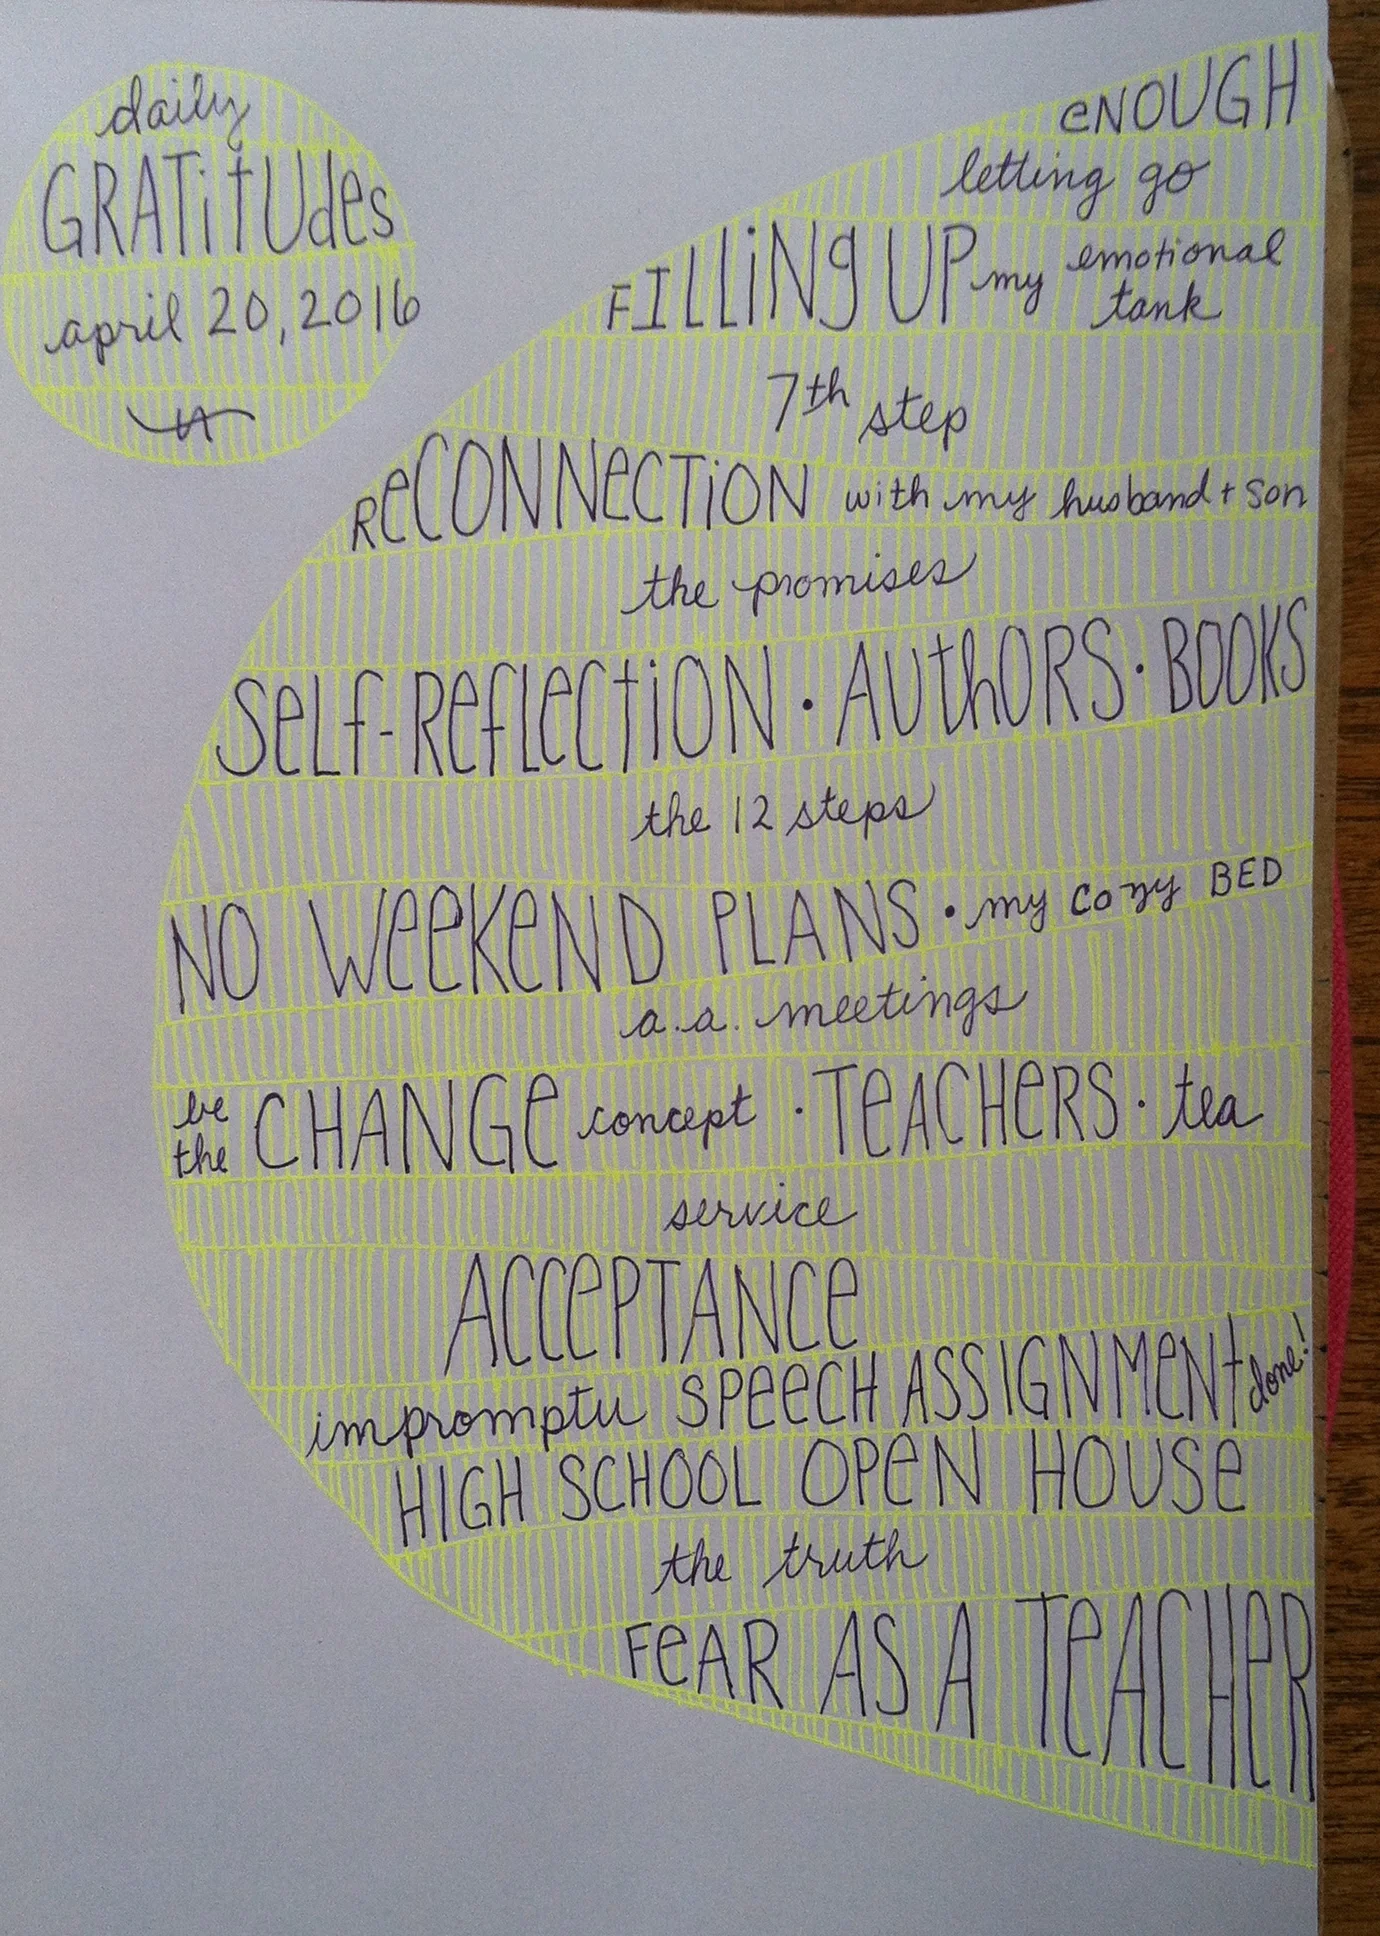 daily
GRATitUdes
april 20, 2016
eNOUGH
letting go
FILLiNg UP my emotional tank
7th step
ReCONNeCTiON with my husband + son
the promises
SeLf-RefLectiON · AUthORS · BOOKS
the 12 steps
NO WeeKeND PLANS · my cozy BED
a.a. meetings
be the CHANGe concept · TeACHeRS · tea
service
ACCePTANCe
impromptu SPeeCH ASSIGNMeNt done!
HIGH SCHOOL OPeN HOUSe
the truth
FeAR AS A TeACHeR